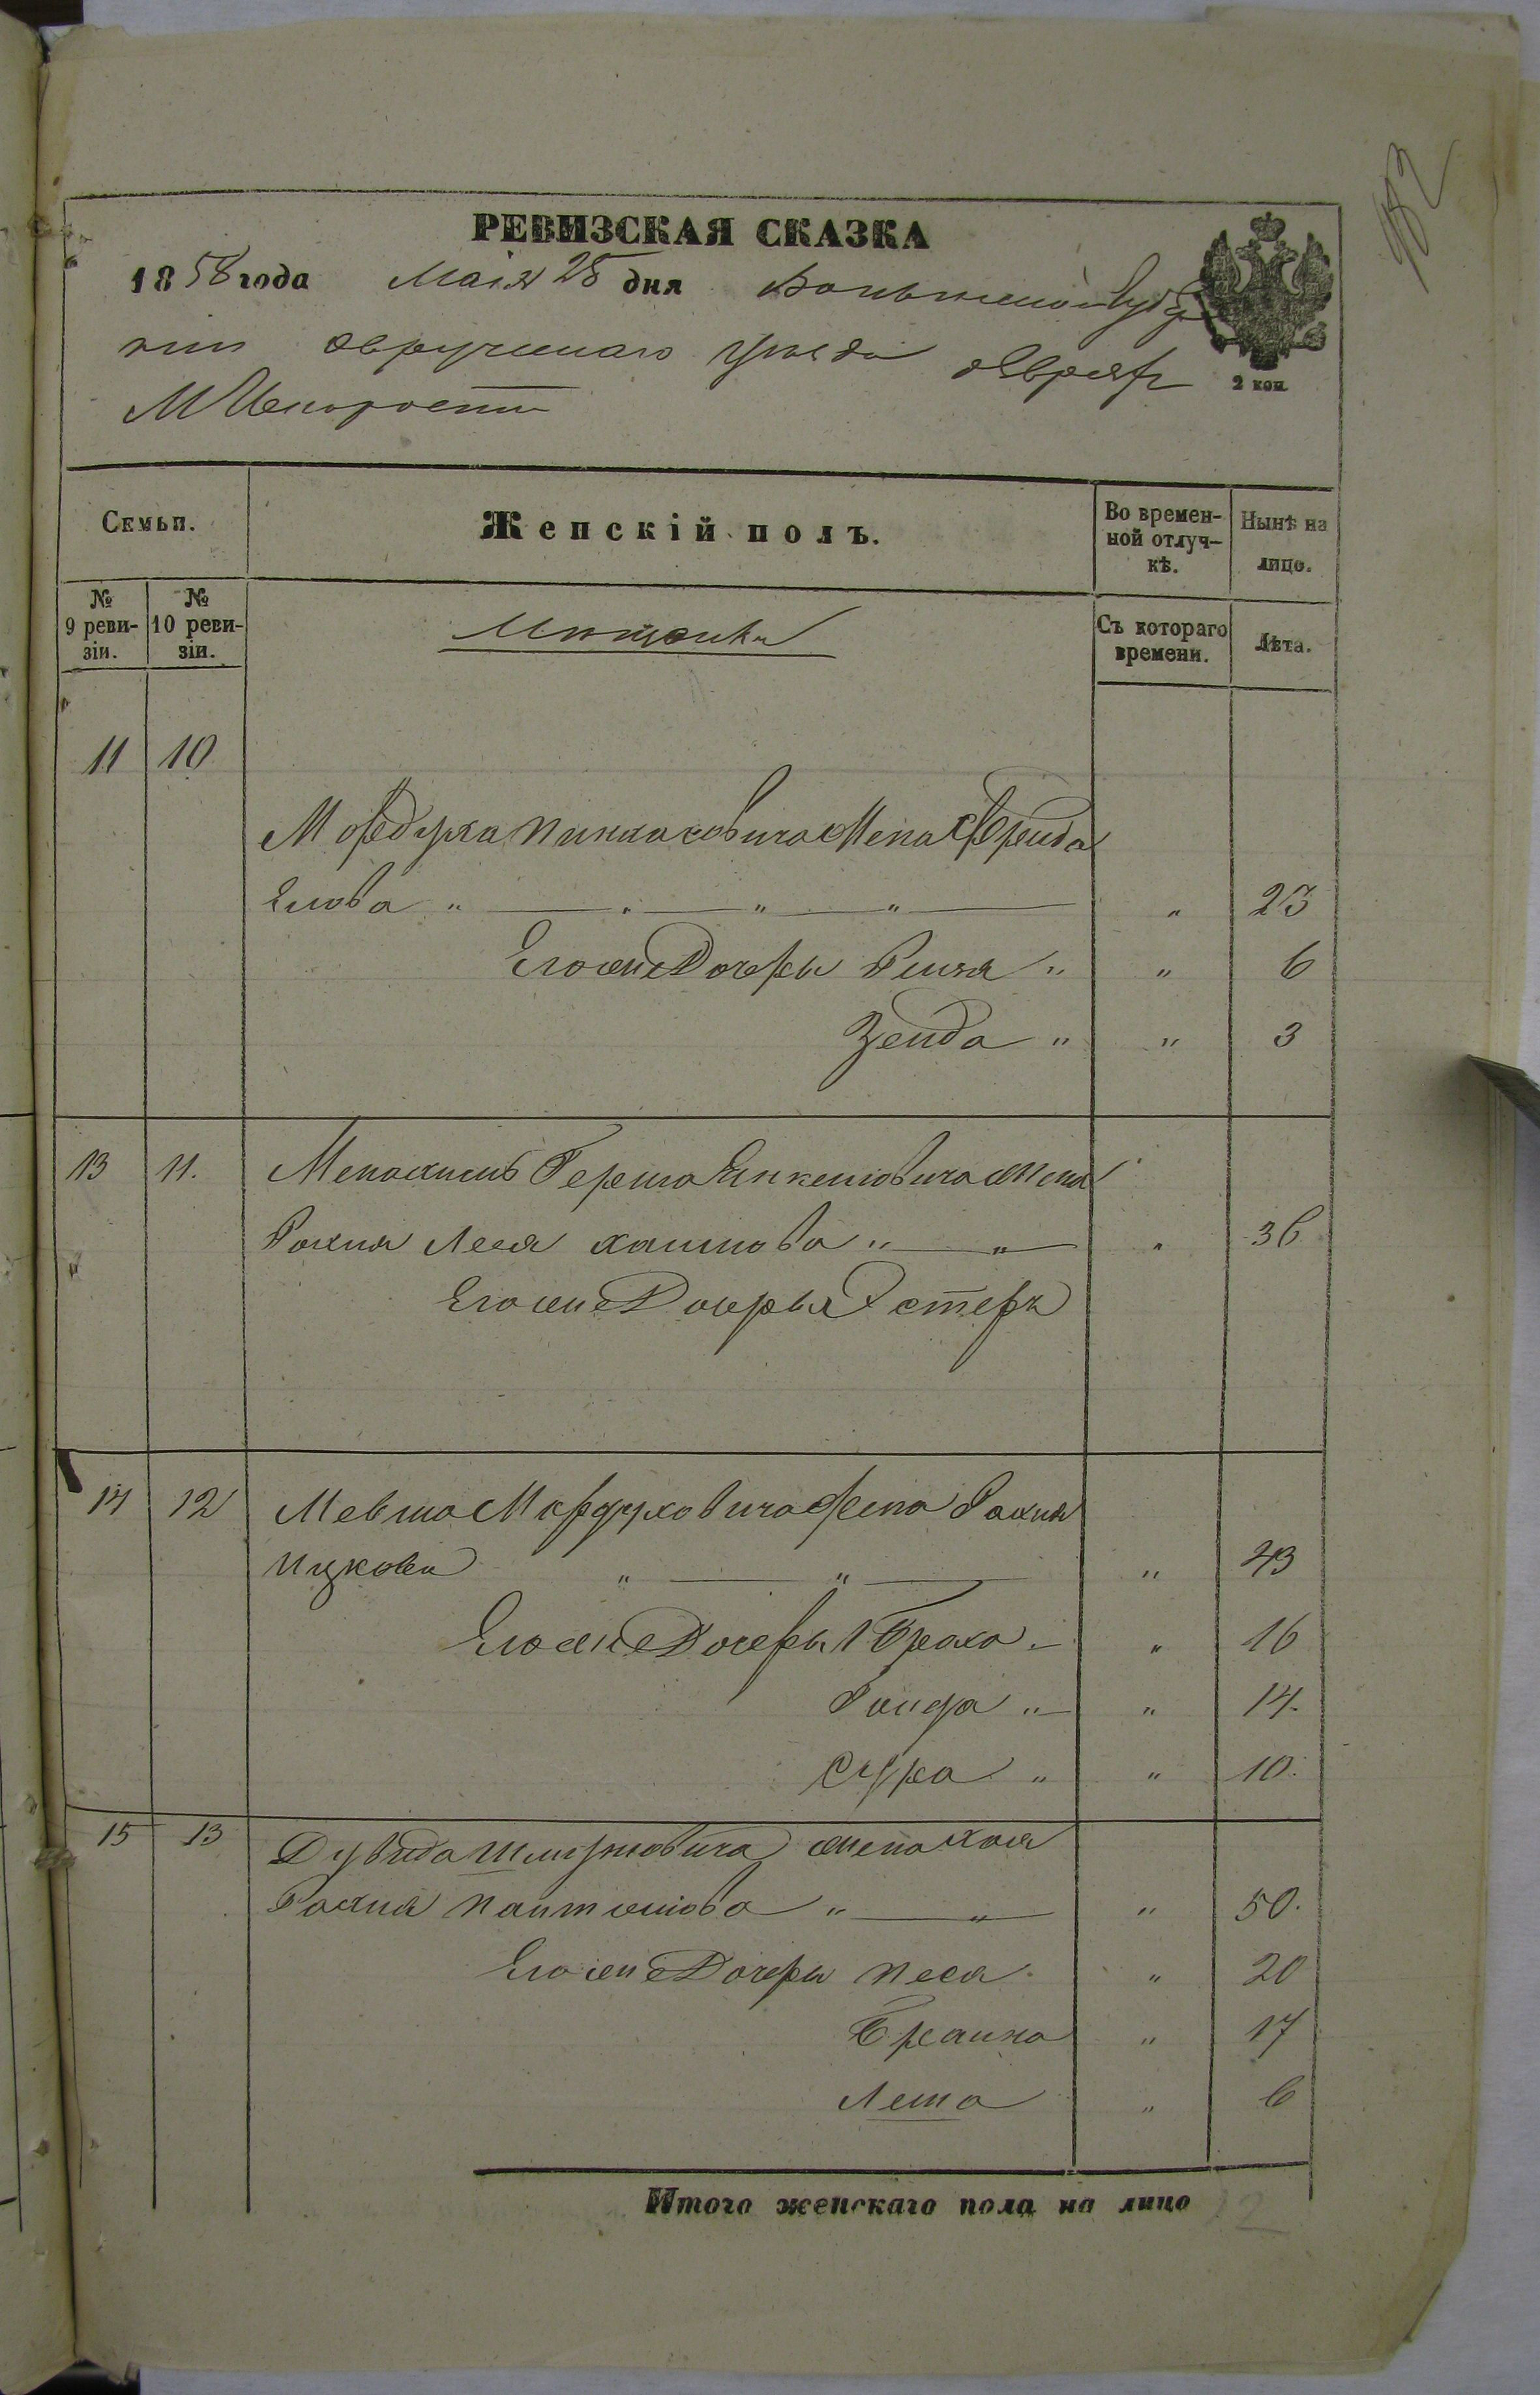 182
РЕВИЗСКАЯ СКАЗКА
1858 года Маія 25 дня Волынской Губер
ніи Овручскаго Уѣзда Евреяхъ
М Искорости
2 коп.
Семьи.
Женскій полъ.
Во времен-
ной отлуч-
кѣ.
Нынѣ на
лицо.
№
9 реви-
зіи.
№
10 реви-
зіи.
Мѣщанки
Съ котораго
времени.
Лѣта.
11 10
Мордуха Пинхасовича Жена Фрейда
Елова " " " " " 23
Его же Дочери Рейзя " " 6
Зейда " " 3
13 11. Герша Янкелювича жена
Рохля Лея Хаимова " " " 36
Его же Дочерь Эстеръ
14 12 Мевша Мордуховича Жена Рохля
Ицкова " " " 43
Его же Дочеры 1 Браха " " 16
" " 14.
Сура " " 10.
15 13 Дувида Шлиомовича жена Хая
Рохля " " " 50.
Его же Дочери Песя " 20
Брайна " 17
" 6
Итого женскаго пола на лицо 12